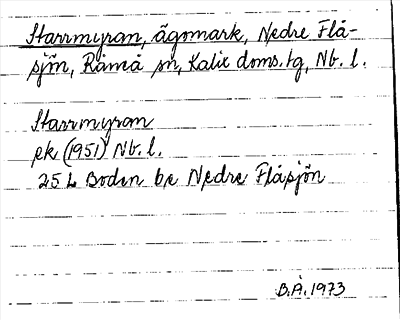 Starrmyran, ägomark, Nedre Flå-
sjön, Råneå sn, Kalix doms.tg, Nb. l.
Starrmyran
ek (1951) Nb. l.
25 L Boden be Nedre Flåsjön
B.Å. 1973